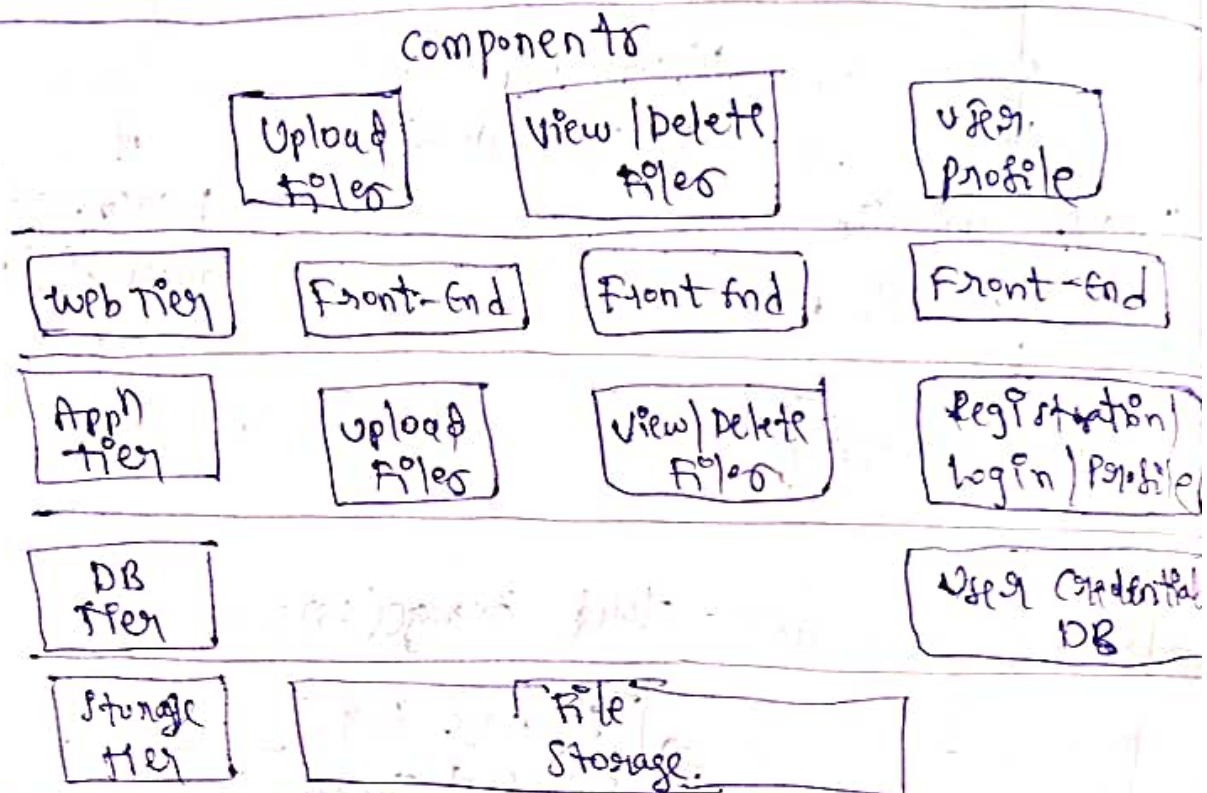 Components
Upload
Files
View / Delete
Files
User
Profile
Web Tier
Front-End
Front End
Front-End
Appn
Tier
Upload
Files
View / Delete
Files
Registration /
Login / Profile
DB
Tier
User Credential
DB
Storage
Tier
File
Storage.